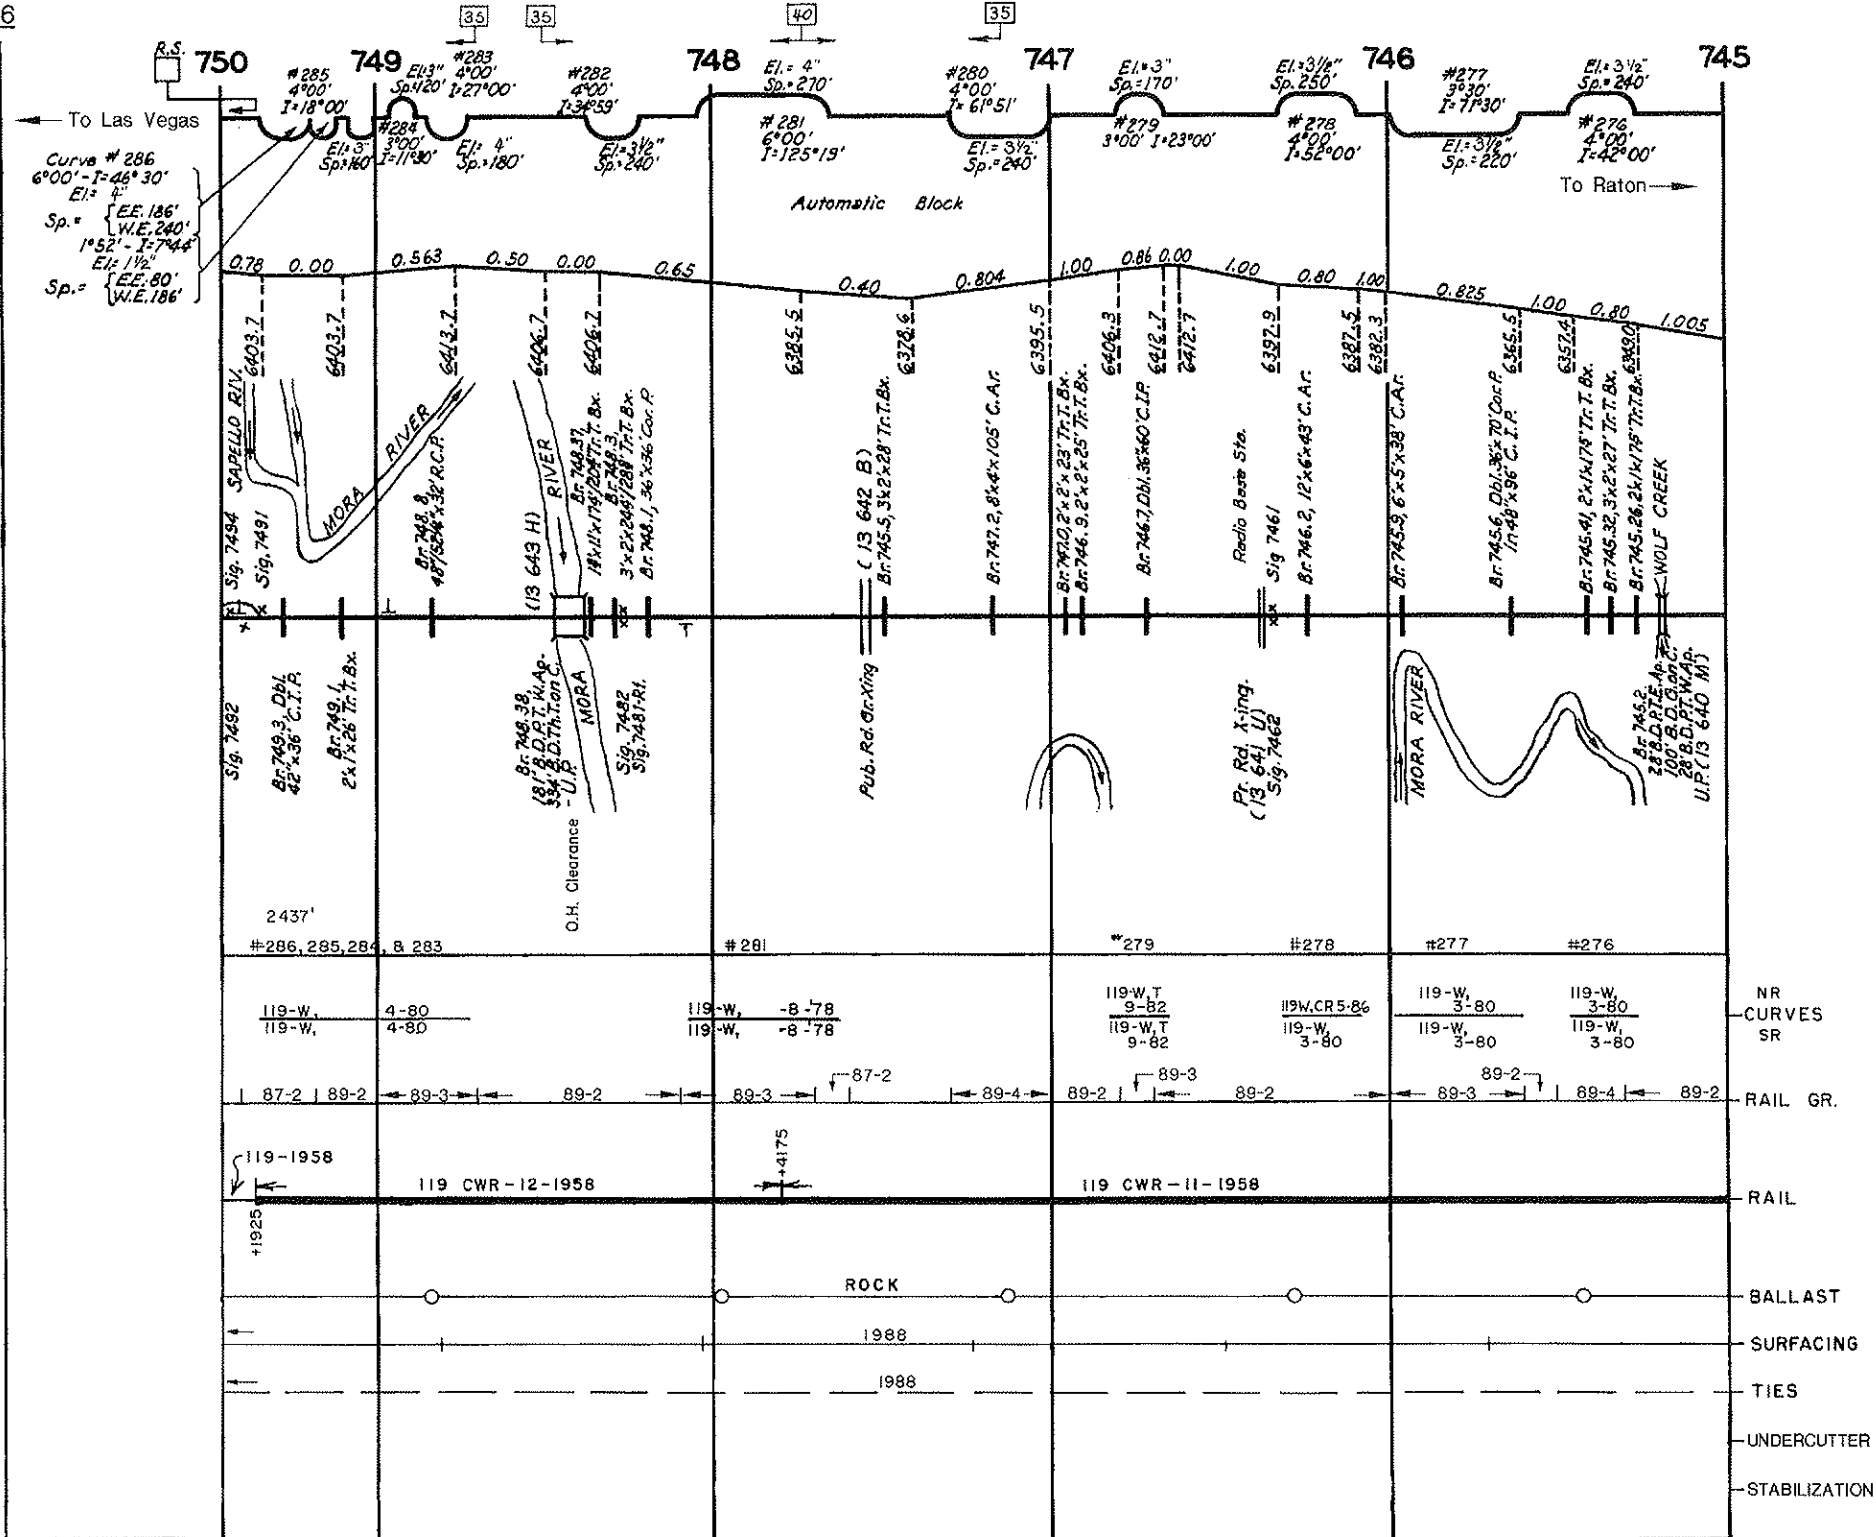 6
35
35
40
35
R.S.
750
749
748
747
746
745
#285
4°00'
I=18°00'
El:3"
Sp:120'
#283
4°00'
I=27°00'
#282
4°00'
I=34°59'
El.= 4"
Sp.=270'
#280
4°00'
I=61°51'
El.=3"
Sp.=170'
El.=3 1/2"
Sp.250'
#277
3°30'
I=71°30'
El.:3 1/2"
Sp.=240'
To Las Vegas
El.=3"
Sp.=160'
#284
3°00'
I=11°30'
El.: 4"
Sp.=180'
El.=3 1/2"
Sp.=240'
#281
6°00'
I=125°19'
El.=3 1/2"
Sp.=240'
#279
3°00' I=23°00'
#278
4°00'
I=52°00'
El.=3 1/2"
Sp.=220'
#276
4°00'
I=42°00'
To Raton
Curve #286
6°00'-I=46°30'
El.= 4"
Sp.= {E.E.186'
W.E.240'
1°52'-I=7°44'
El.=1 1/2"
Sp.= {E.E.80'
W.E.186'
Automatic Block
0.78
0.00
0.563
0.50
0.00
0.65
0.40
0.804
1.00
0.86
0.00
1.00
0.80
1.00
0.825
1.00
0.80
1.005
6403.7
6403.7
6413.7
6406.7
6406.7
6385.5
6378.6
6395.5
6406.3
6412.7
6412.7
6397.9
6387.5
6382.3
6365.5
6357.4
6349.0
SAPELLO RIV.
Sig. 7494
Sig. 7491
MORA RIVER
Br. 748.8,
RIVER
(13 643 H)
Br. 748.37,
Br. 748.3,
Br. 748.1, 36"x36' Cor. P.
(13 642 B)
Br. 745.5, 3'x2'x28' Tr.T.Bx.
Br. 747.2, 8'x4'x105' C.Ar.
Br. 747.0, 2'x2'x23' Tr.T.Bx.
Br. 746.9, 2'x2'x25' Tr.T.Bx.
Br. 746.7, Dbl. 36"x60' C.I.P.
Radio Base Sta.
Sig 7461
Br. 746.2, 12'x6'x43' C.Ar.
Br. 745.9, 6'x5'x38' C.Ar.
Br. 745.6, Dbl. 36"x70' Cor. P.
in 48"x96' C.I.P.
Br. 745.41, 2'x1'x175' Tr.T.Bx.
Br. 745.32, 3'x2'x27' Tr.T.Bx.
Br. 745.26, 2'x1'x175' Tr.T.Bx.
WOLF CREEK
Sig. 7492
Br. 749.3, Dbl.
42"x36' C.I.P.
Br. 749.1,
2'x1'x26' Tr.T.Bx.
Br. 748.38,
181' B.D.P.T.W.Ap-
334' B.D.Th.T.on C.
- U.P.
MORA
Sig. 7482
Sig. 7481-Rt.
Pub. Rd. Gr. Xing
Pr. Rd. X-ing.
(13 641 U)
Sig. 7462
MORA RIVER
Br. 745.2
28' B.D.P.T.E.Ap.
100' B.D.G.on C.
28' B.D.P.T.W.Ap.
U.P. (13 640 M)
O.H. Clearance
2437'
#286, 285, 284, & 283
#281
#279
#278
#277
#276
119-W, 4-80
119-W, 4-80
119-W, -8-78
119-W, -8-78
119-W,T
9-82
119-W,T
9-82
119W,CR 5-86
119-W,
3-80
119-W,
3-80
119-W,
3-80
119-W,
3-80
119-W,
3-80
NR
CURVES
SR
87-2
89-2
89-3
89-2
89-3
87-2
89-4
89-2
89-3
89-2
89-3
89-2
89-4
89-2
RAIL GR.
119-1958
+1925
119 CWR-12-1958
+4175
119 CWR-11-1958
RAIL
ROCK
BALLAST
1988
SURFACING
1988
TIES
UNDERCUTTER
STABILIZATION